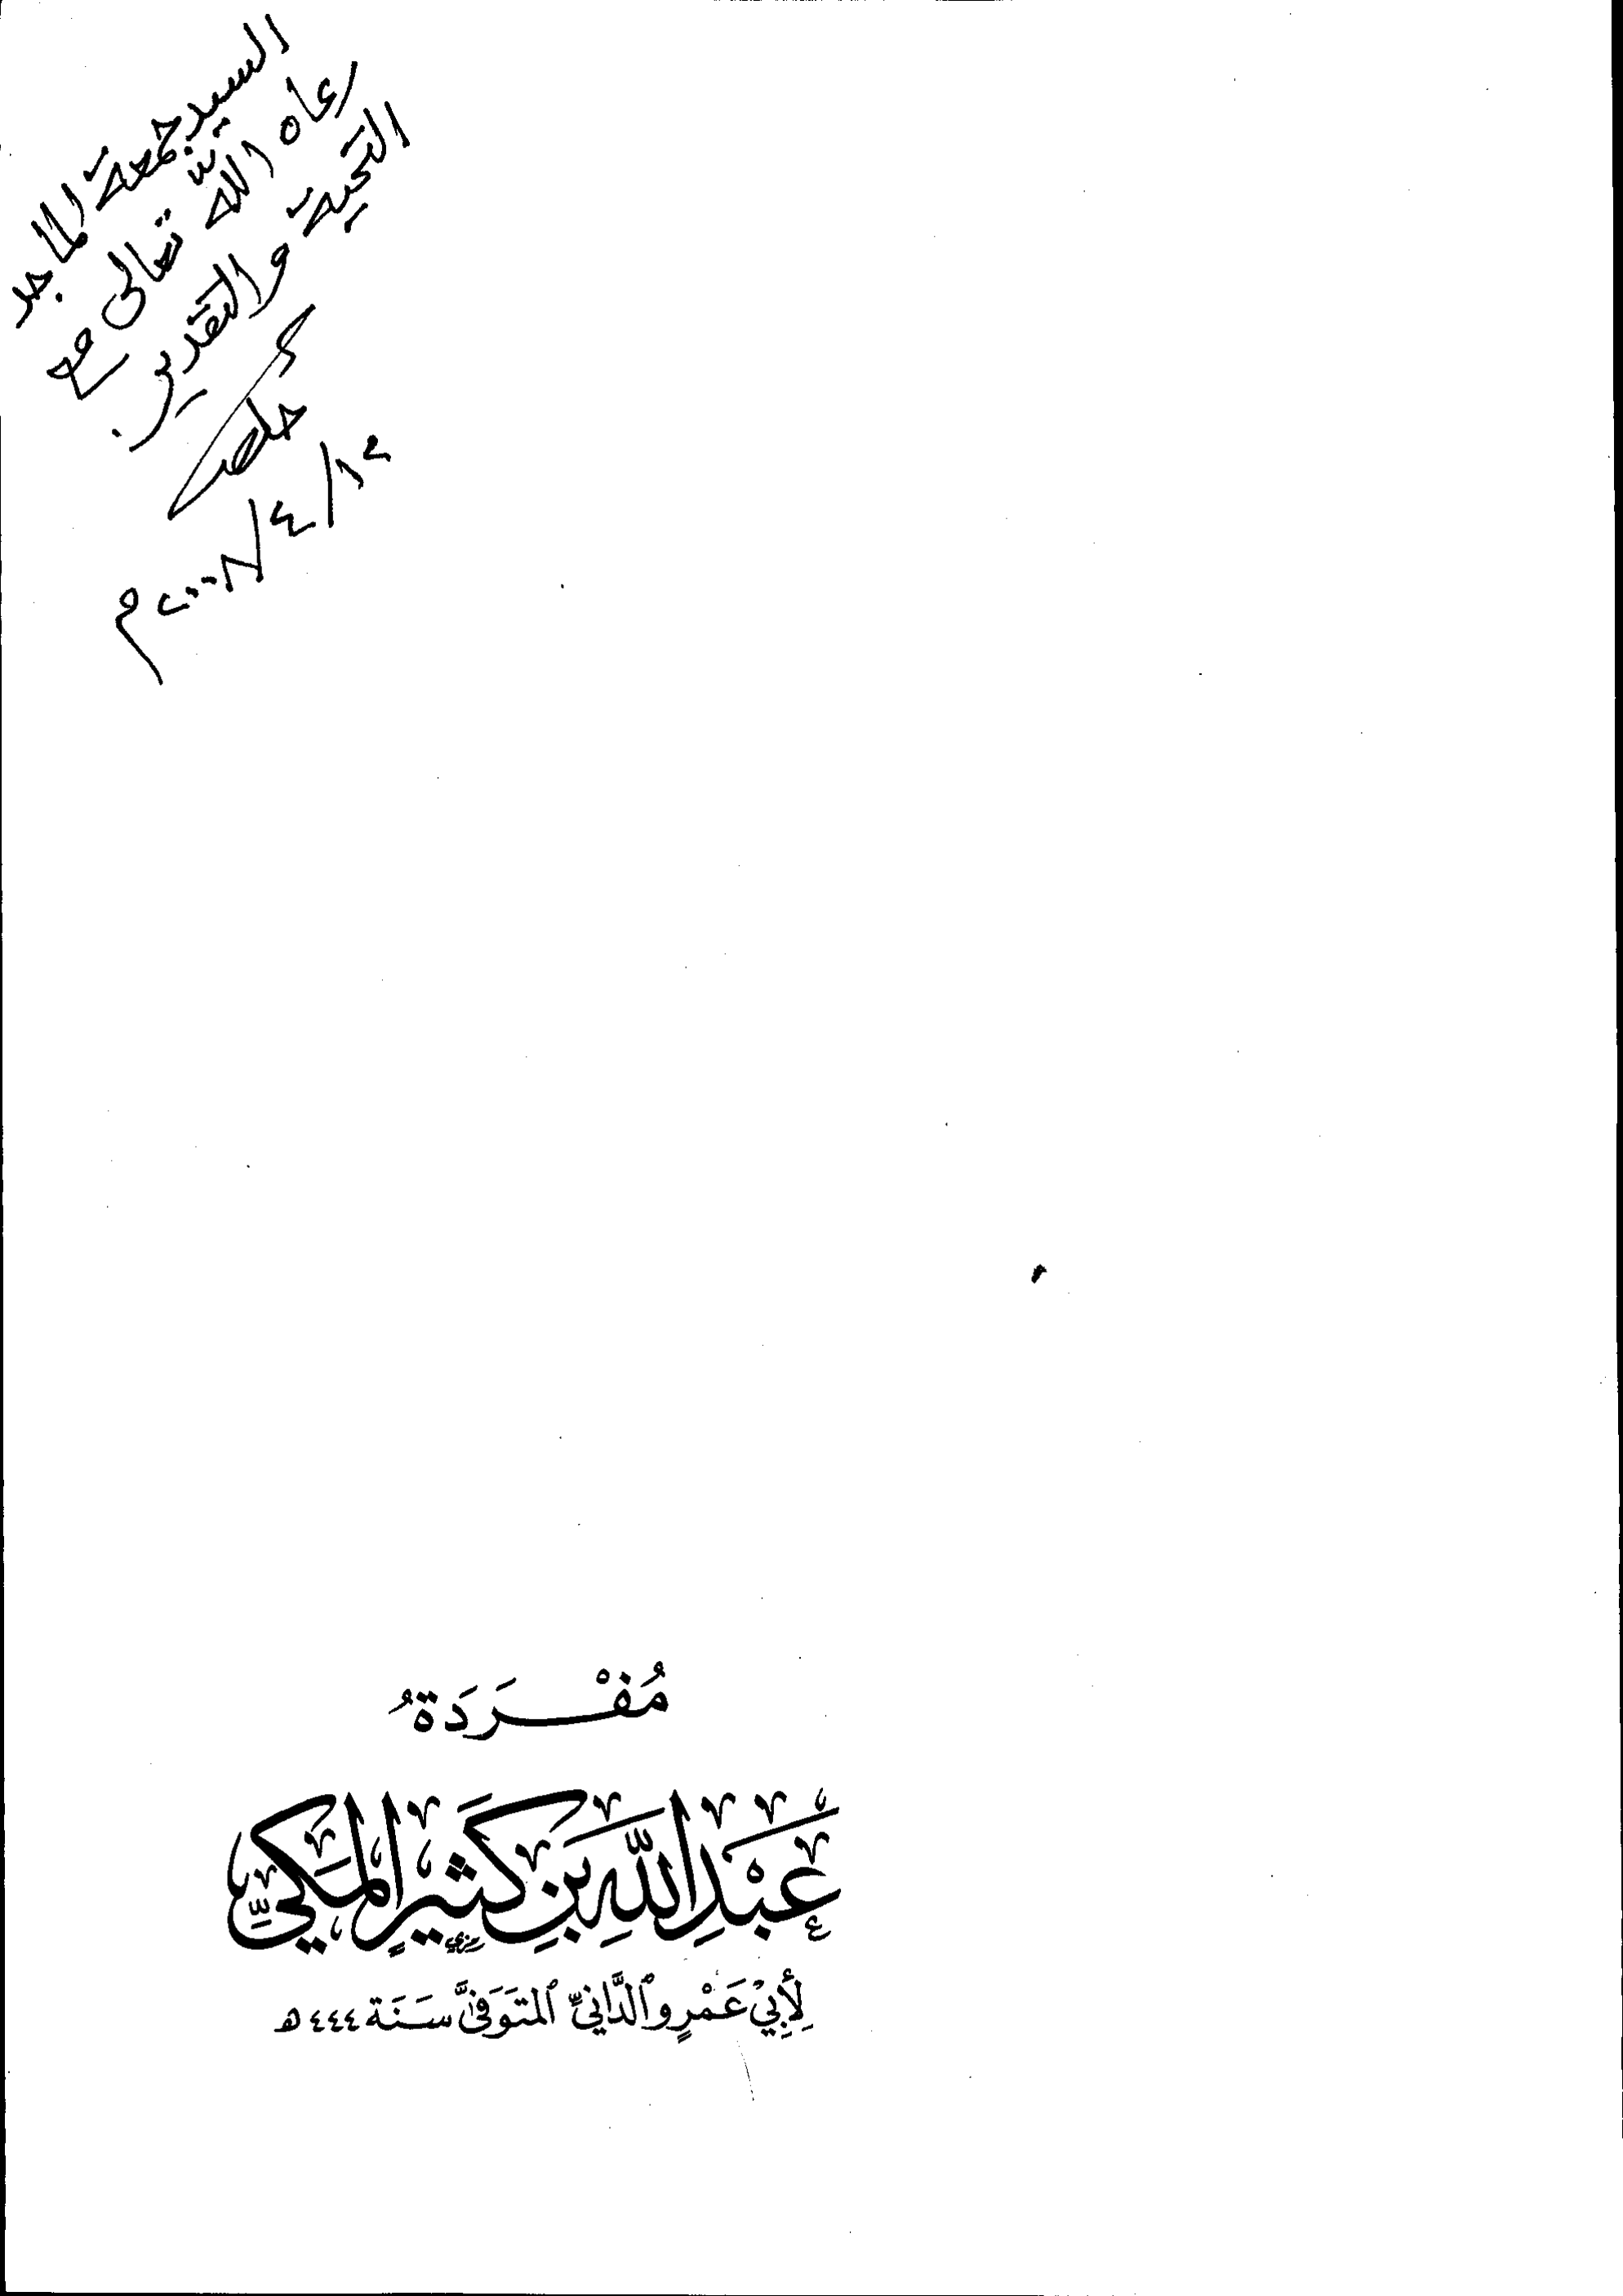 السيد جمعة الماجد
رعاه الله تعالى مع
التحية والتقدير.
٢٠٠٨/٤/١٢م
مُفْرَدَةُ
عَبْدِ اللَّهِ بنِ كَثِيرٍ المَكِّيِّ
لِأَبِي عَمْرٍو ٱلدَّانِيِّ ٱلمتَوَفَّىٰ سَنَة ٤٤٤ ه